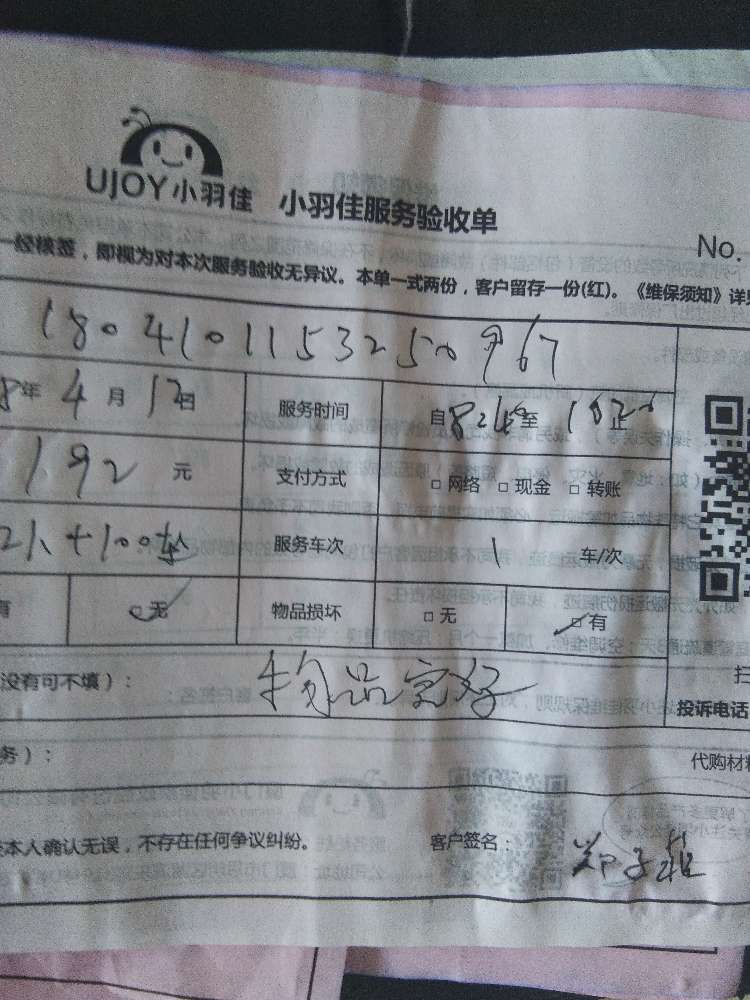 UJOY小羽佳 小羽佳服务验收单
No.
一经核签，即视为对本次服务验收无异议。本单一式两份，客户留存一份(红)。《维保须知》详见
18041011532500967
8年4月12日 服务时间 自 至 止
192元 支付方式 □网络 □现金 □转账
21+100车 服务车次 1 车/次
有 □无 物品损坏 □无 □有
没有可不填）： 物品完好
投诉电话
务）：
代购材料
本人确认无误，不存在任何争议纠纷。 客户签名：郑子菲